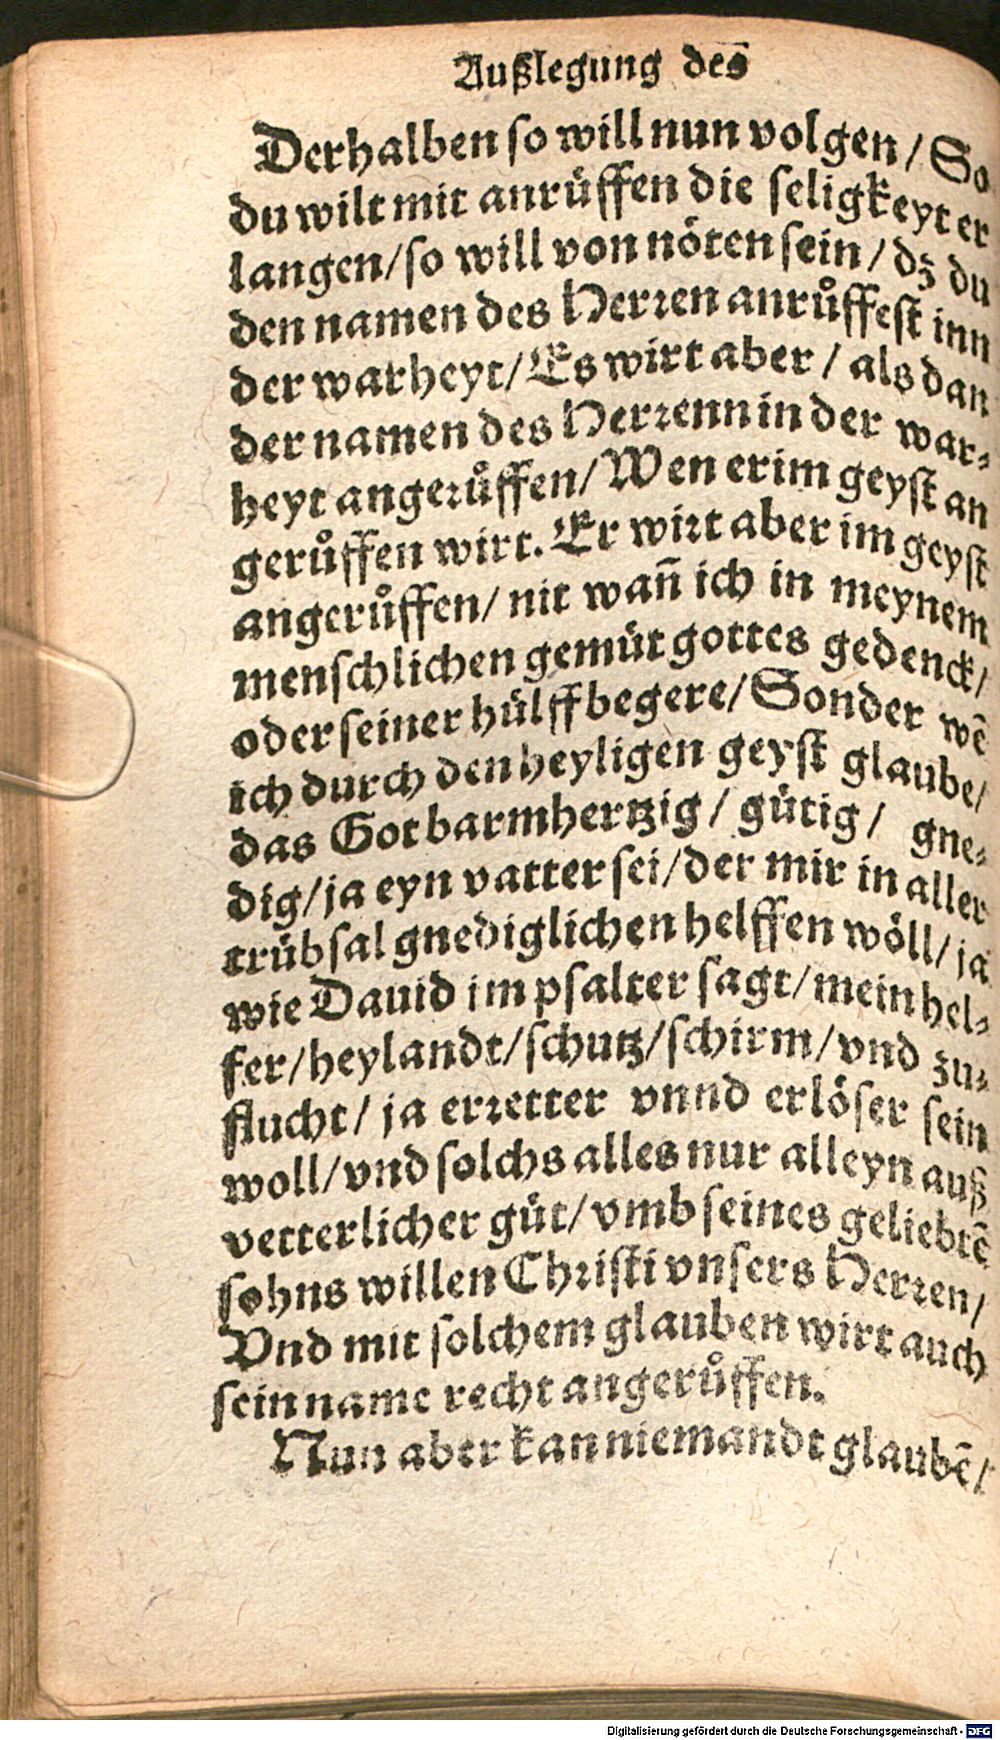 Außlegung des
Derhalben so will nun volgen / So
du wilt mit anrůffen die seligkeyt er
langen / so will von nöten sein / dz du
den namen des Herren anrůffest inn
der warheyt / Es wirt aber / als dan
der namen des Herrenn in der war⸗
heyt angerůffen / Wen er im geyst an
gerůffen wirt. Er wirt aber im geyst
angerůffen / nit wañ ich in meynem
menschlichen gemüt gottes gedenck /
oder seiner hülff begere / Sonder wē
ich durch den heyligen geyst glaube /
das Got barmhertzig / gütig / gne⸗
dig / ja eyn vatter sei / der mir in aller
trübsal gnediglichen helffen wöll / ja
wie Dauid im psalter sagt / mein hel⸗
fer / heylandt / schutz / schirm / vnd zu⸗
flucht / ja erretter vnnd erlöser sein
woll / vnd solchs alles nur alleyn auß
vetterlicher güt / vmb seines geliebtē
sohns willen Christi vnsers Herren /
Vnd mit solchem glauben wirt auch
sein name recht angerůffen.
Nun aber kan niemandt glaubē /
Digitalisierung gefördert durch die Deutsche Forschungsgemeinschaft - DFG